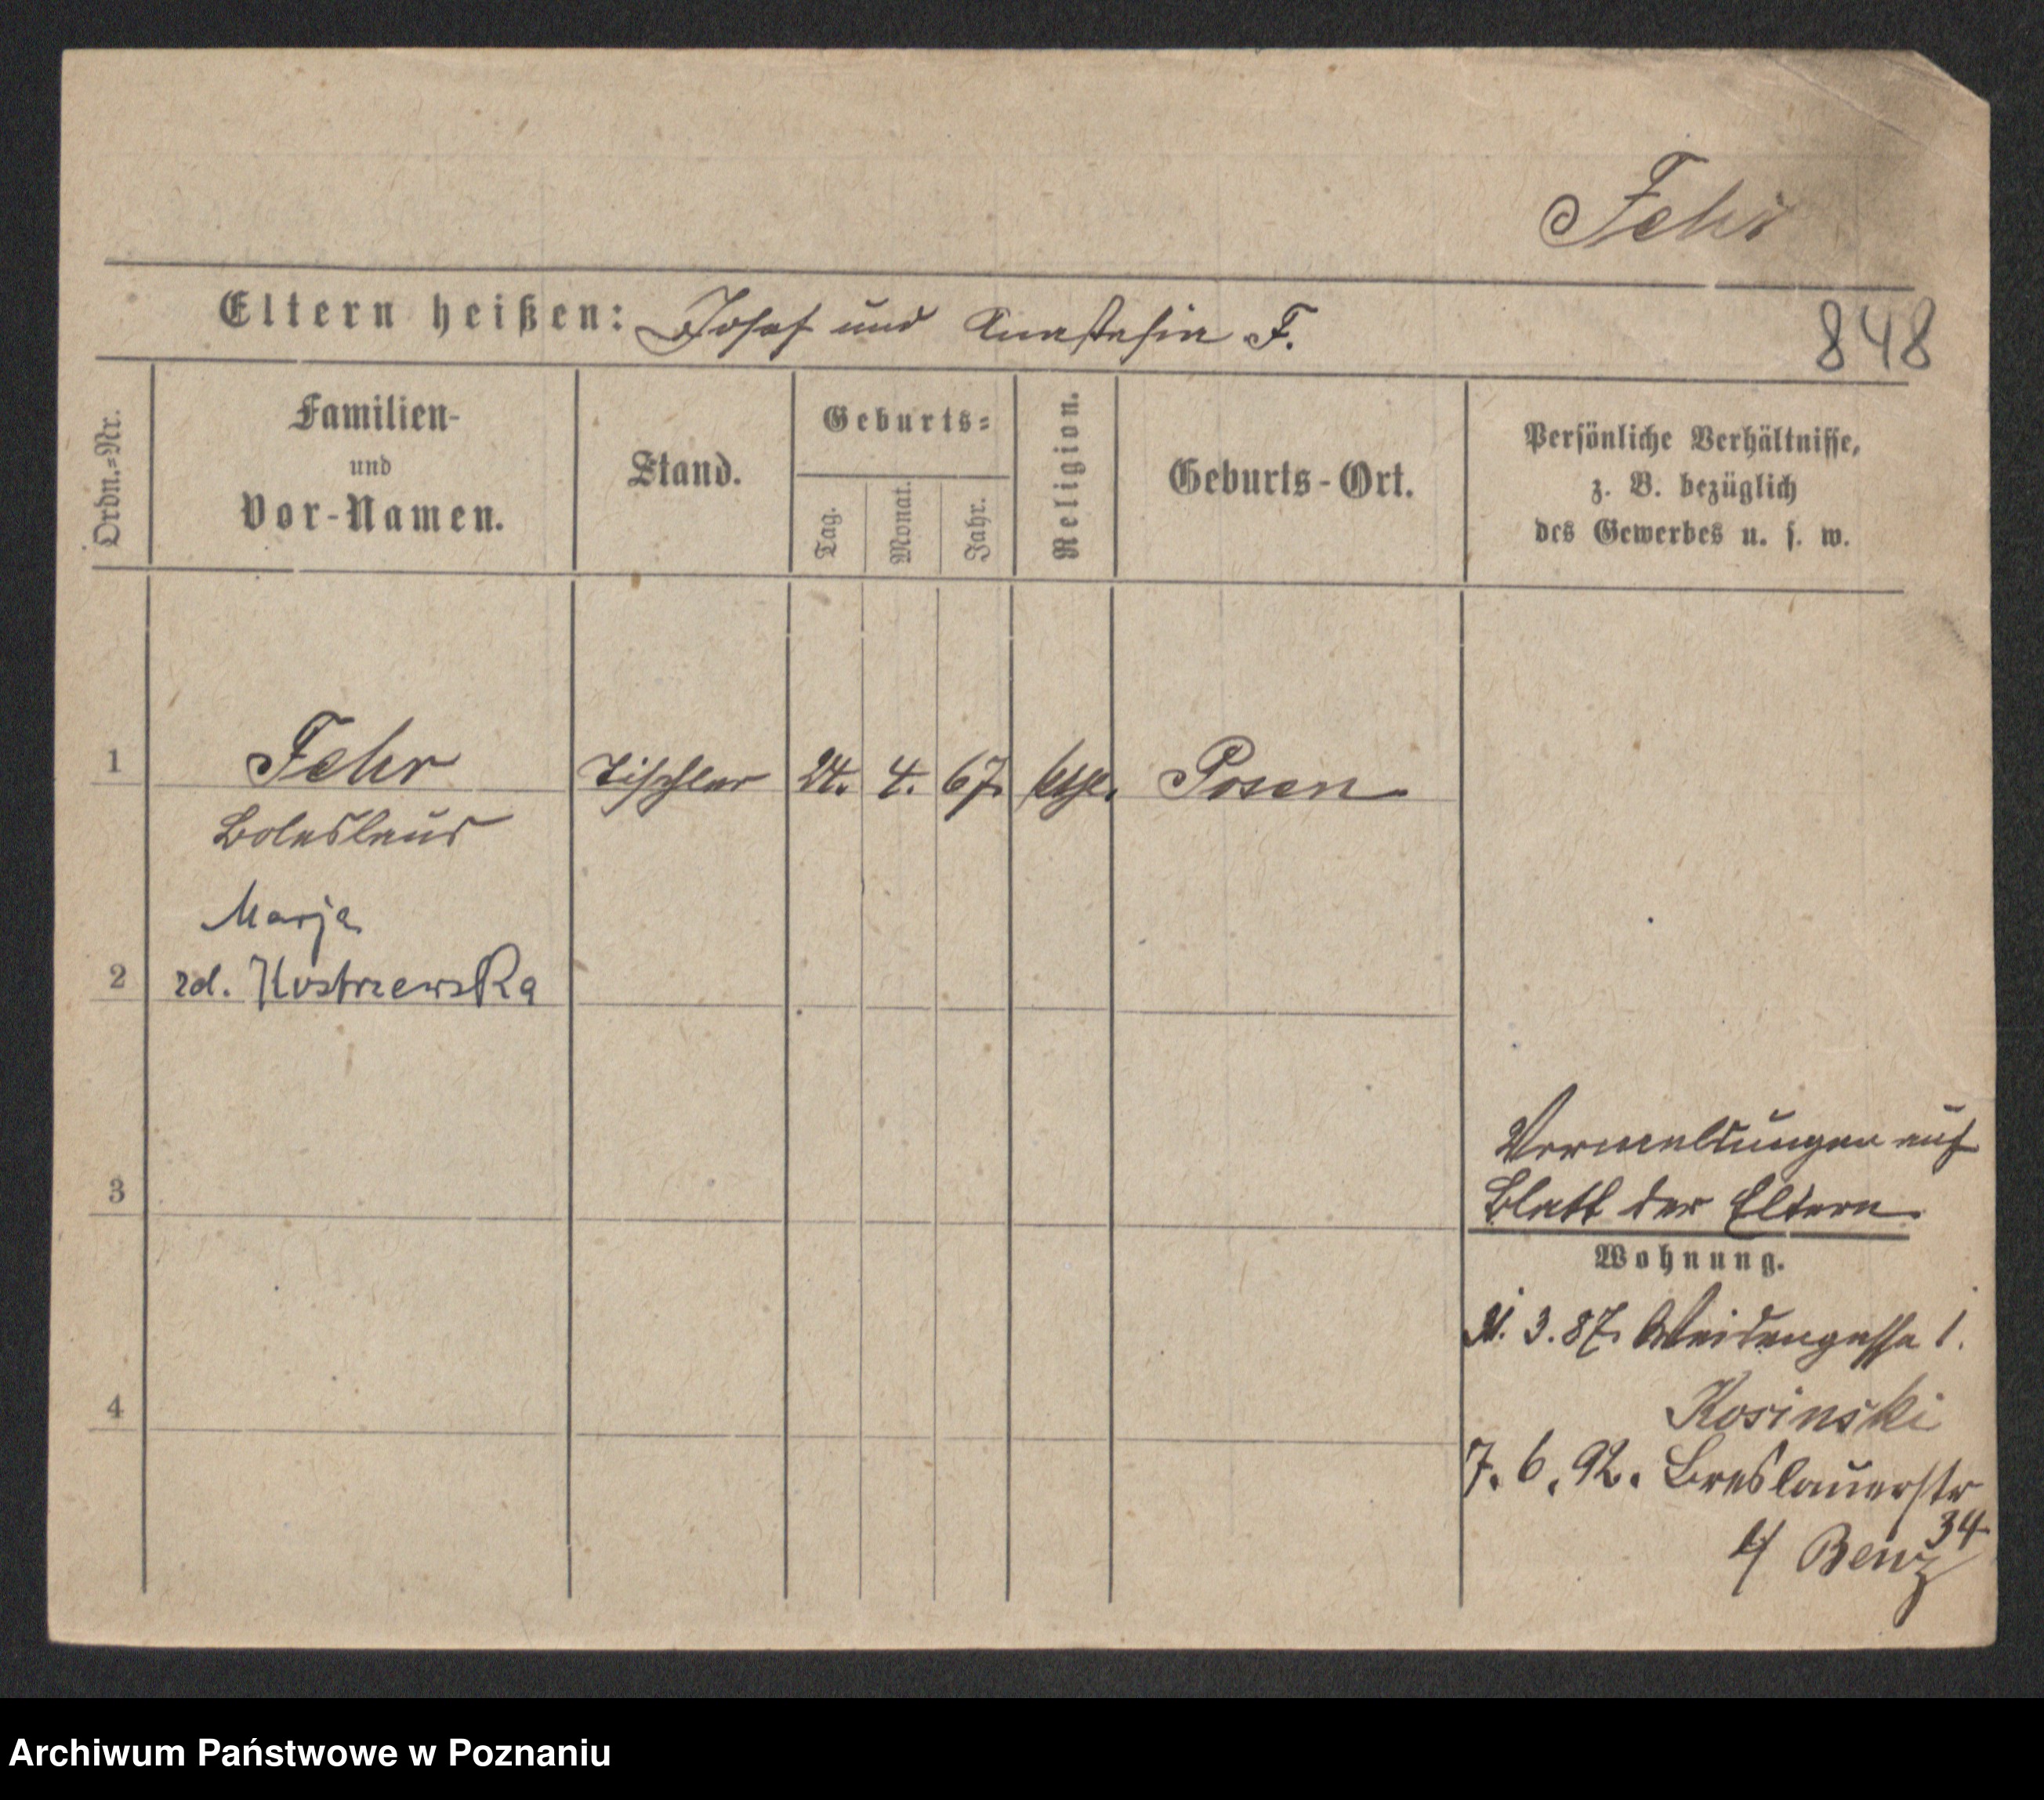 Fehr
Eltern heißen: Josef und Anastasia F.
848
Ordn.=Nr.
Familien-
und
Vor-Namen.
Stand.
Geburts=
Tag.
Monat.
Jahr.
Religion.
Geburts-Ort.
Persönliche Verhältnisse,
z. B. bezüglich
des Gewerbes u. s. w.
1 Fehr Tischler 24. 4. 67. kath. Posen
Boleslaus
Marja
2 zd. Kostrzewska
3
Vermeldungen auf
Blatt der Eltern
Wohnung.
3. 87. Weidengasse 1.
4
Kosinski
7. 6. 92. Breslauerstr
34
b/ Benz
Archiwum Państwowe w Poznaniu